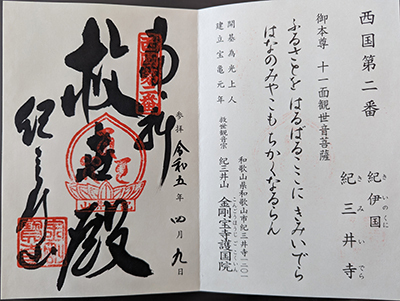 西国第二番
紀伊国
きいのくに
紀三井寺
きみいでら
御本尊 十一面観世音菩薩
ふるさとを はるばるここに きみいでら
はなのみやこも ちかくなるらん
開基為光上人
建立宝亀元年
和歌山県和歌山市紀三井寺一二〇一
救世観音宗 紀三井山 金剛宝寺護国院
こんごうほうじごこくいん
奉拝
西国第二番
救世殿
紀三井山
参拝 令和五年四月九日